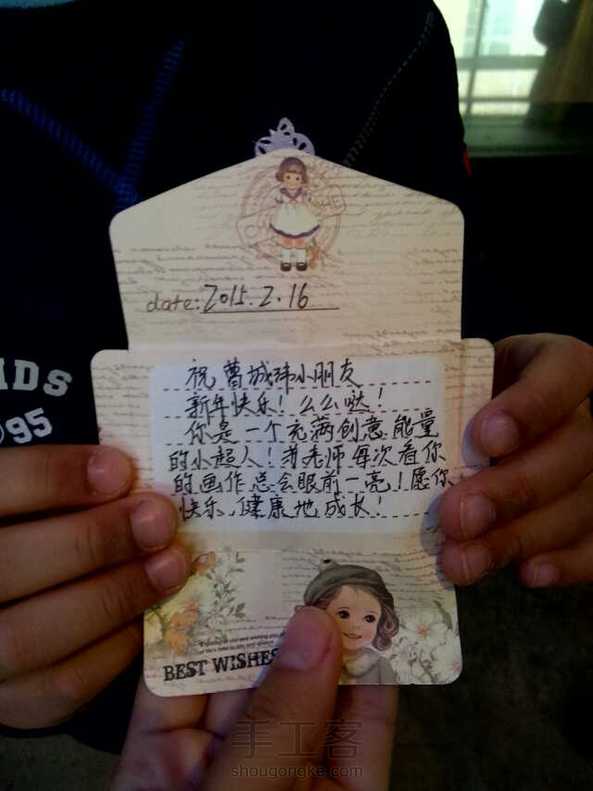 date: 2015.2.16
祝曹城玮小朋友
新年快乐！么么哒！
你是一个充满创意能量
的小超人！老师每次看你
的画作总会眼前一亮！愿你
快乐，健康地成长！
BEST WISHES
IDS
95
手工客
shougongke.com